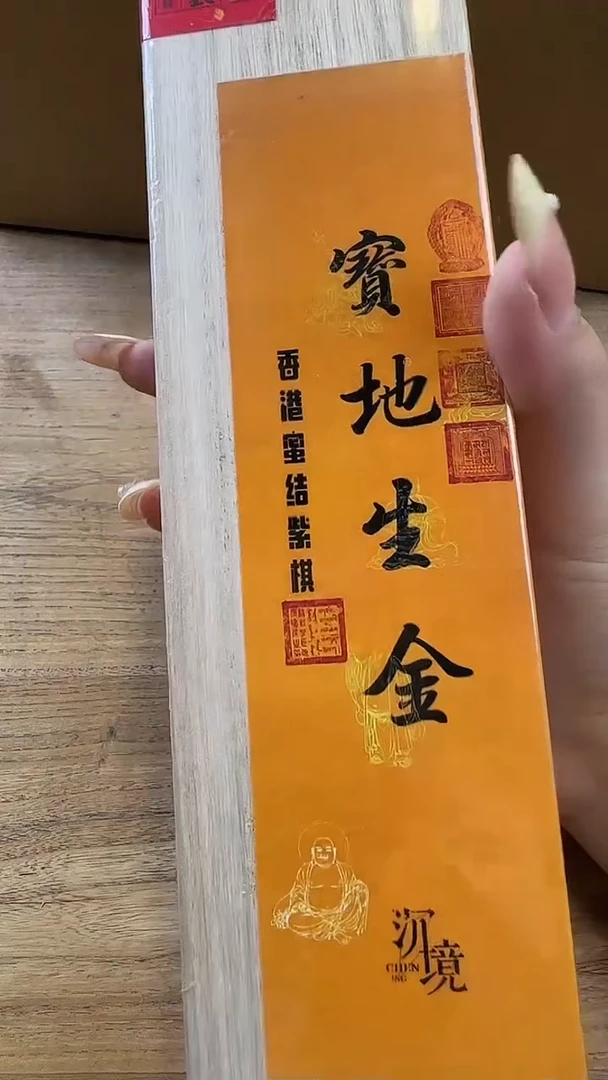 寶地生金
香港蜜结紫棋
沉境
CHEN
ING